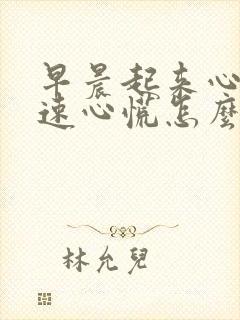 早晨起来心
速心慌怎麼
林允兒